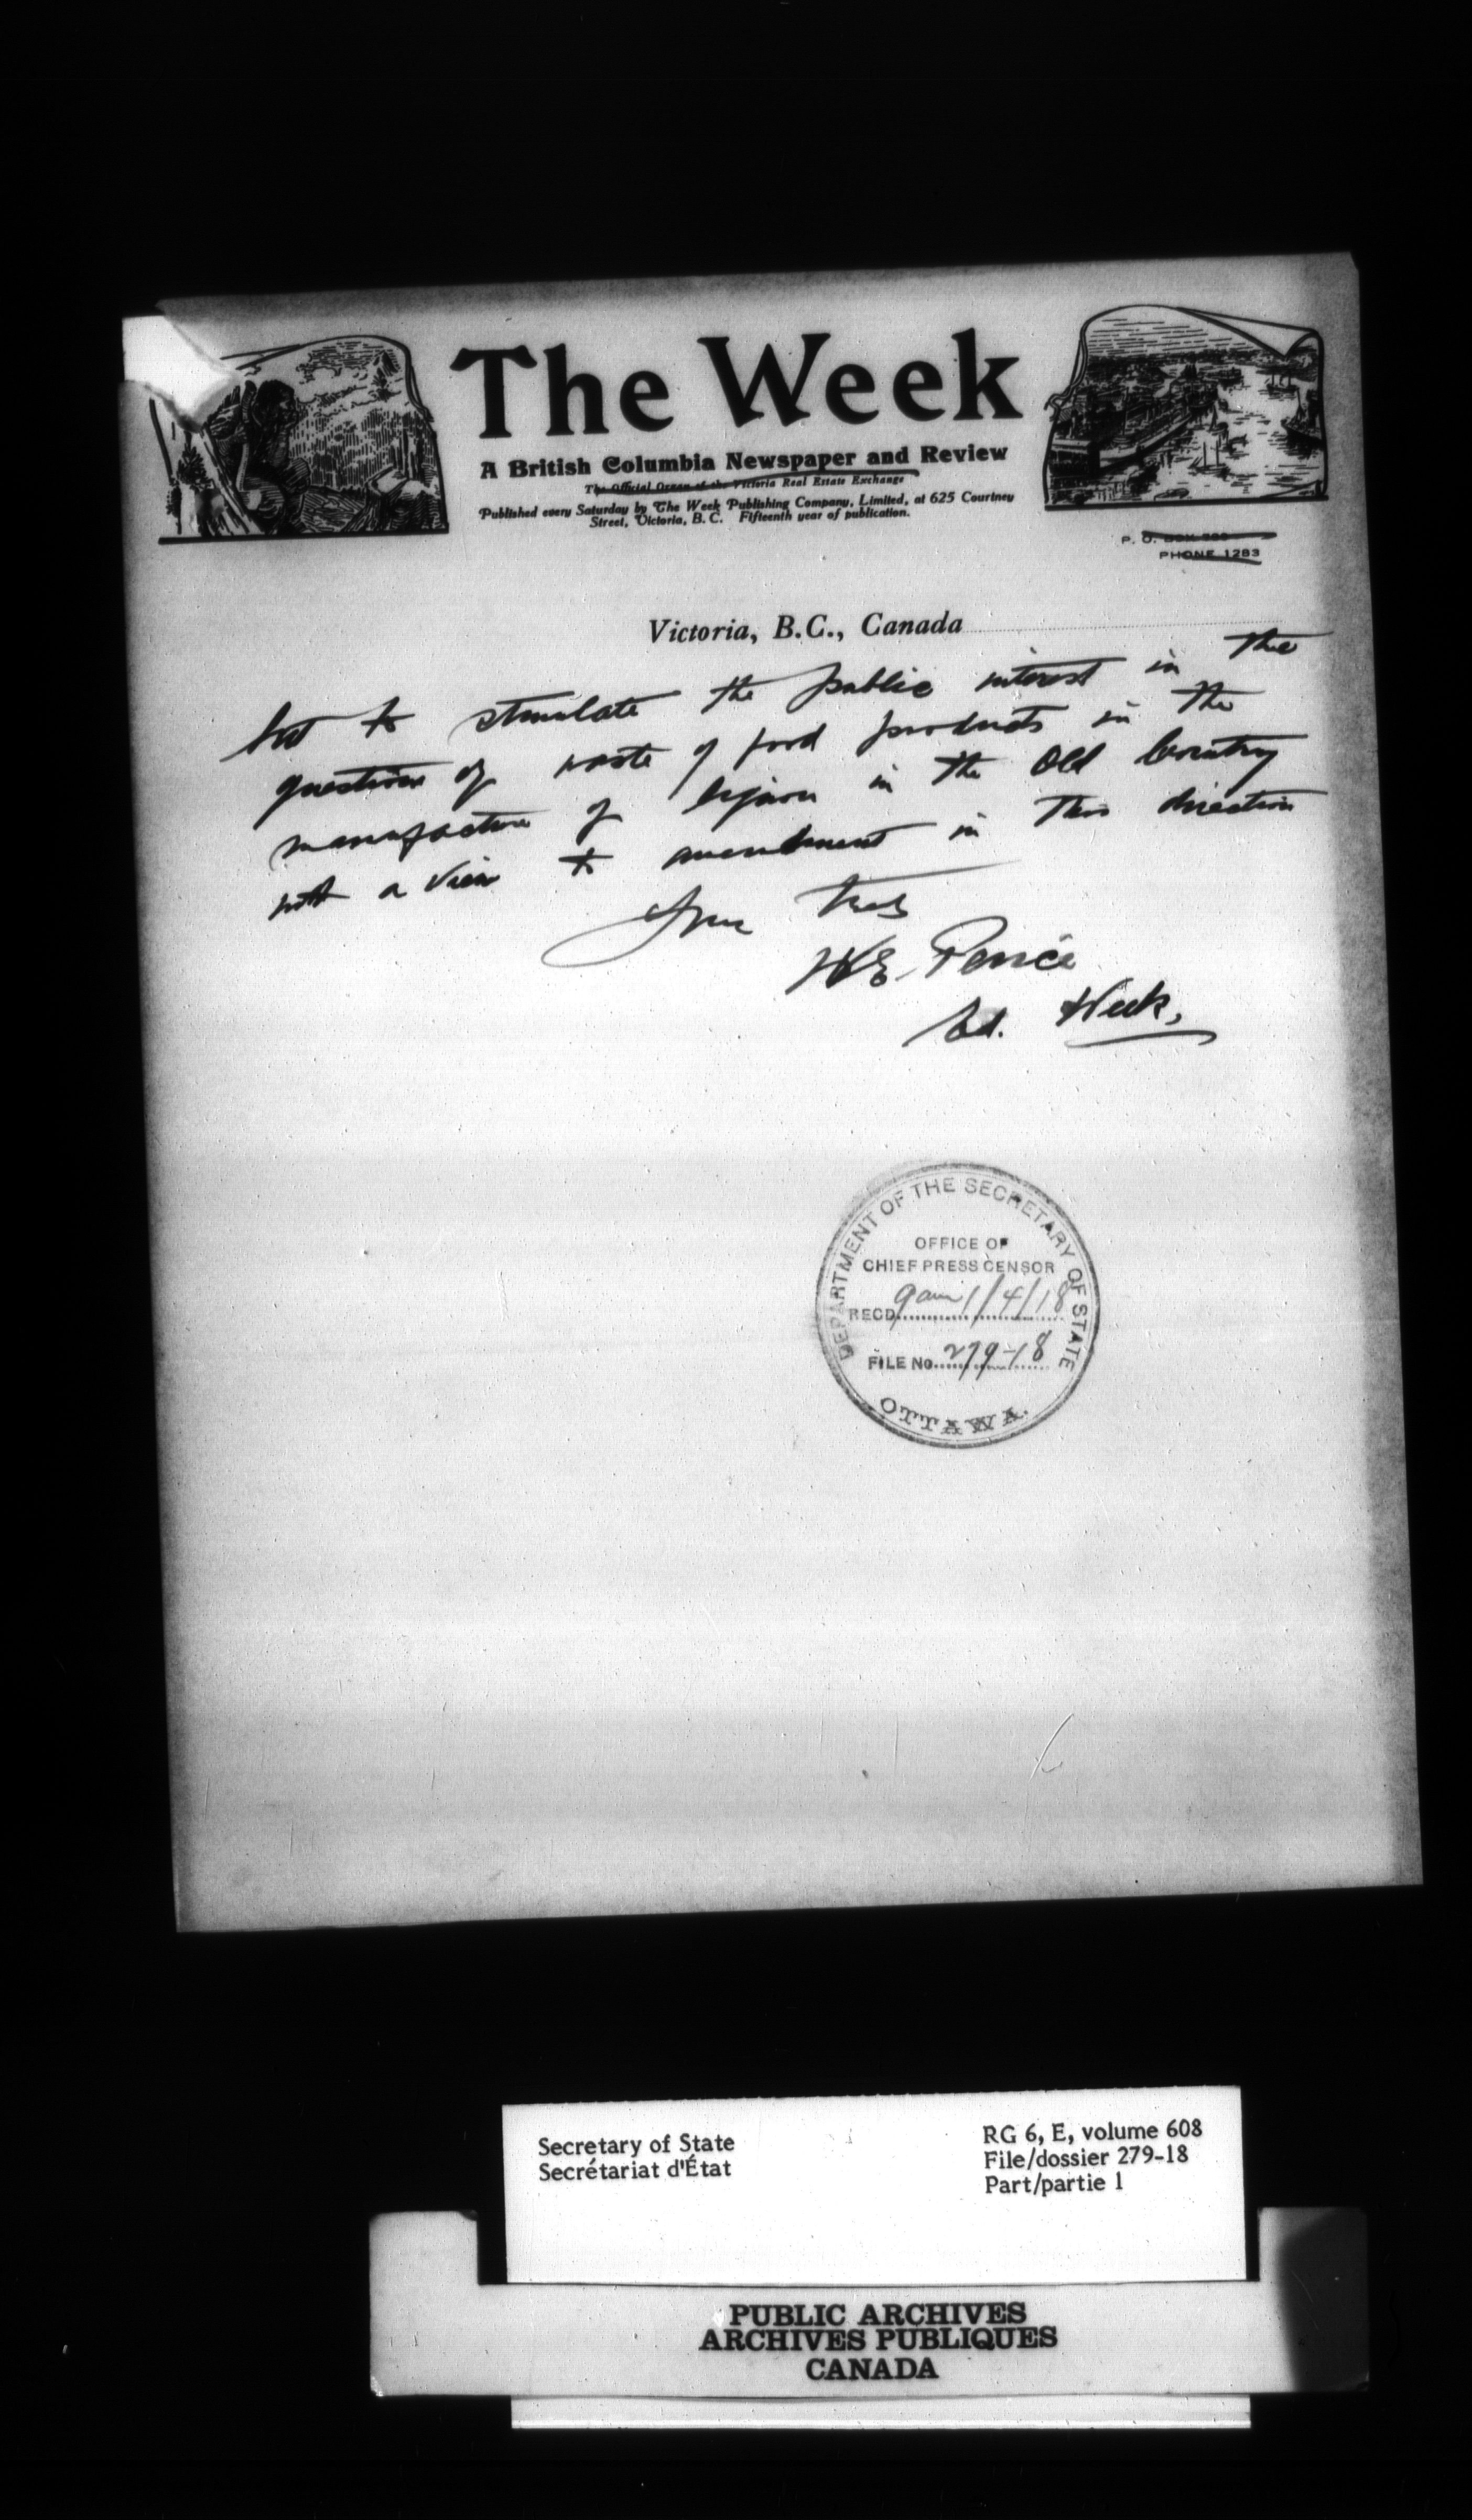 The Week
A British Columbia Newspaper and Review
The Official Organ of the Victoria Real Estate Exchange
Published every Saturday by The Week Publishing Company, Limited, at 625 Courtney
Street, Victoria, B. C. Fifteenth year of publication.
P. O. BOX
PHONE 1283
Victoria, B.C., Canada
but to stimulate the public interest in the
question of waste of food products in the
manufacture of liquor in the Old Country
with a view to amendment in this direction
Yours truly
W.E. Peirce
Ed. Week.
DEPARTMENT OF THE SECRETARY OF STATE
OFFICE OF
CHIEF PRESS CENSOR
RECD. 9am 1/4/18
FILE No. 279-18
OTTAWA.
Secretary of State
Secrétariat d'État
RG 6, E, volume 608
File/dossier 279-18
Part/partie 1
PUBLIC ARCHIVES
ARCHIVES PUBLIQUES
CANADA